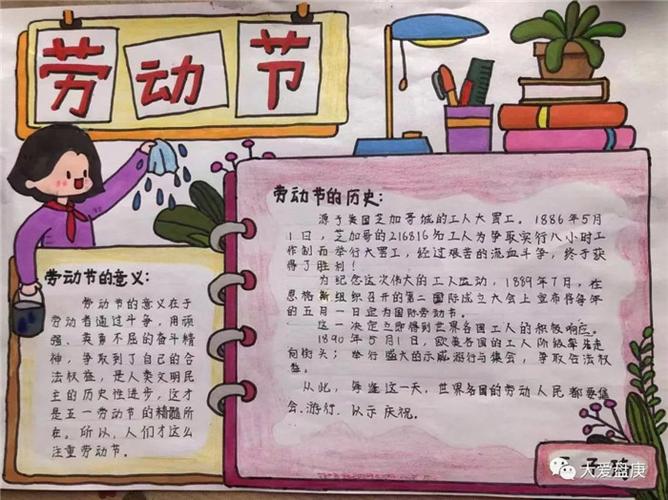 劳动节
劳动节的意义:
劳动节的意义在于
劳动者通过斗争,用顽
强、英勇不屈的奋斗精
神,争取到了自己的合
法权益,是人类文明民
主的历史性进步,这才
是五一劳动节的精髓所
在。所以,人们才这么
注重劳动节。
劳动节的历史:
源于美国芝加哥城的工人大罢工。1886年5月
1日,芝加哥的216816名工人为争取实行八小时工
作制而举行大罢工,经过艰苦的流血斗争,终于获
得了胜利!
为纪念这次伟大的工人运动,1889年7月,在
恩格斯组织召开的第二国际成立大会上宣布将每年
的五月一日定为国际劳动节。
这一决定立即得到世界各国工人的积极响应。
1890年5月1日,欧美各国的工人阶级率先走
向街头,举行盛大的示威游行与集会,争取合法权
益。
从此,每逢这一天,世界各国的劳动人民都要集
会、游行,以示庆祝。
大爱盘庚